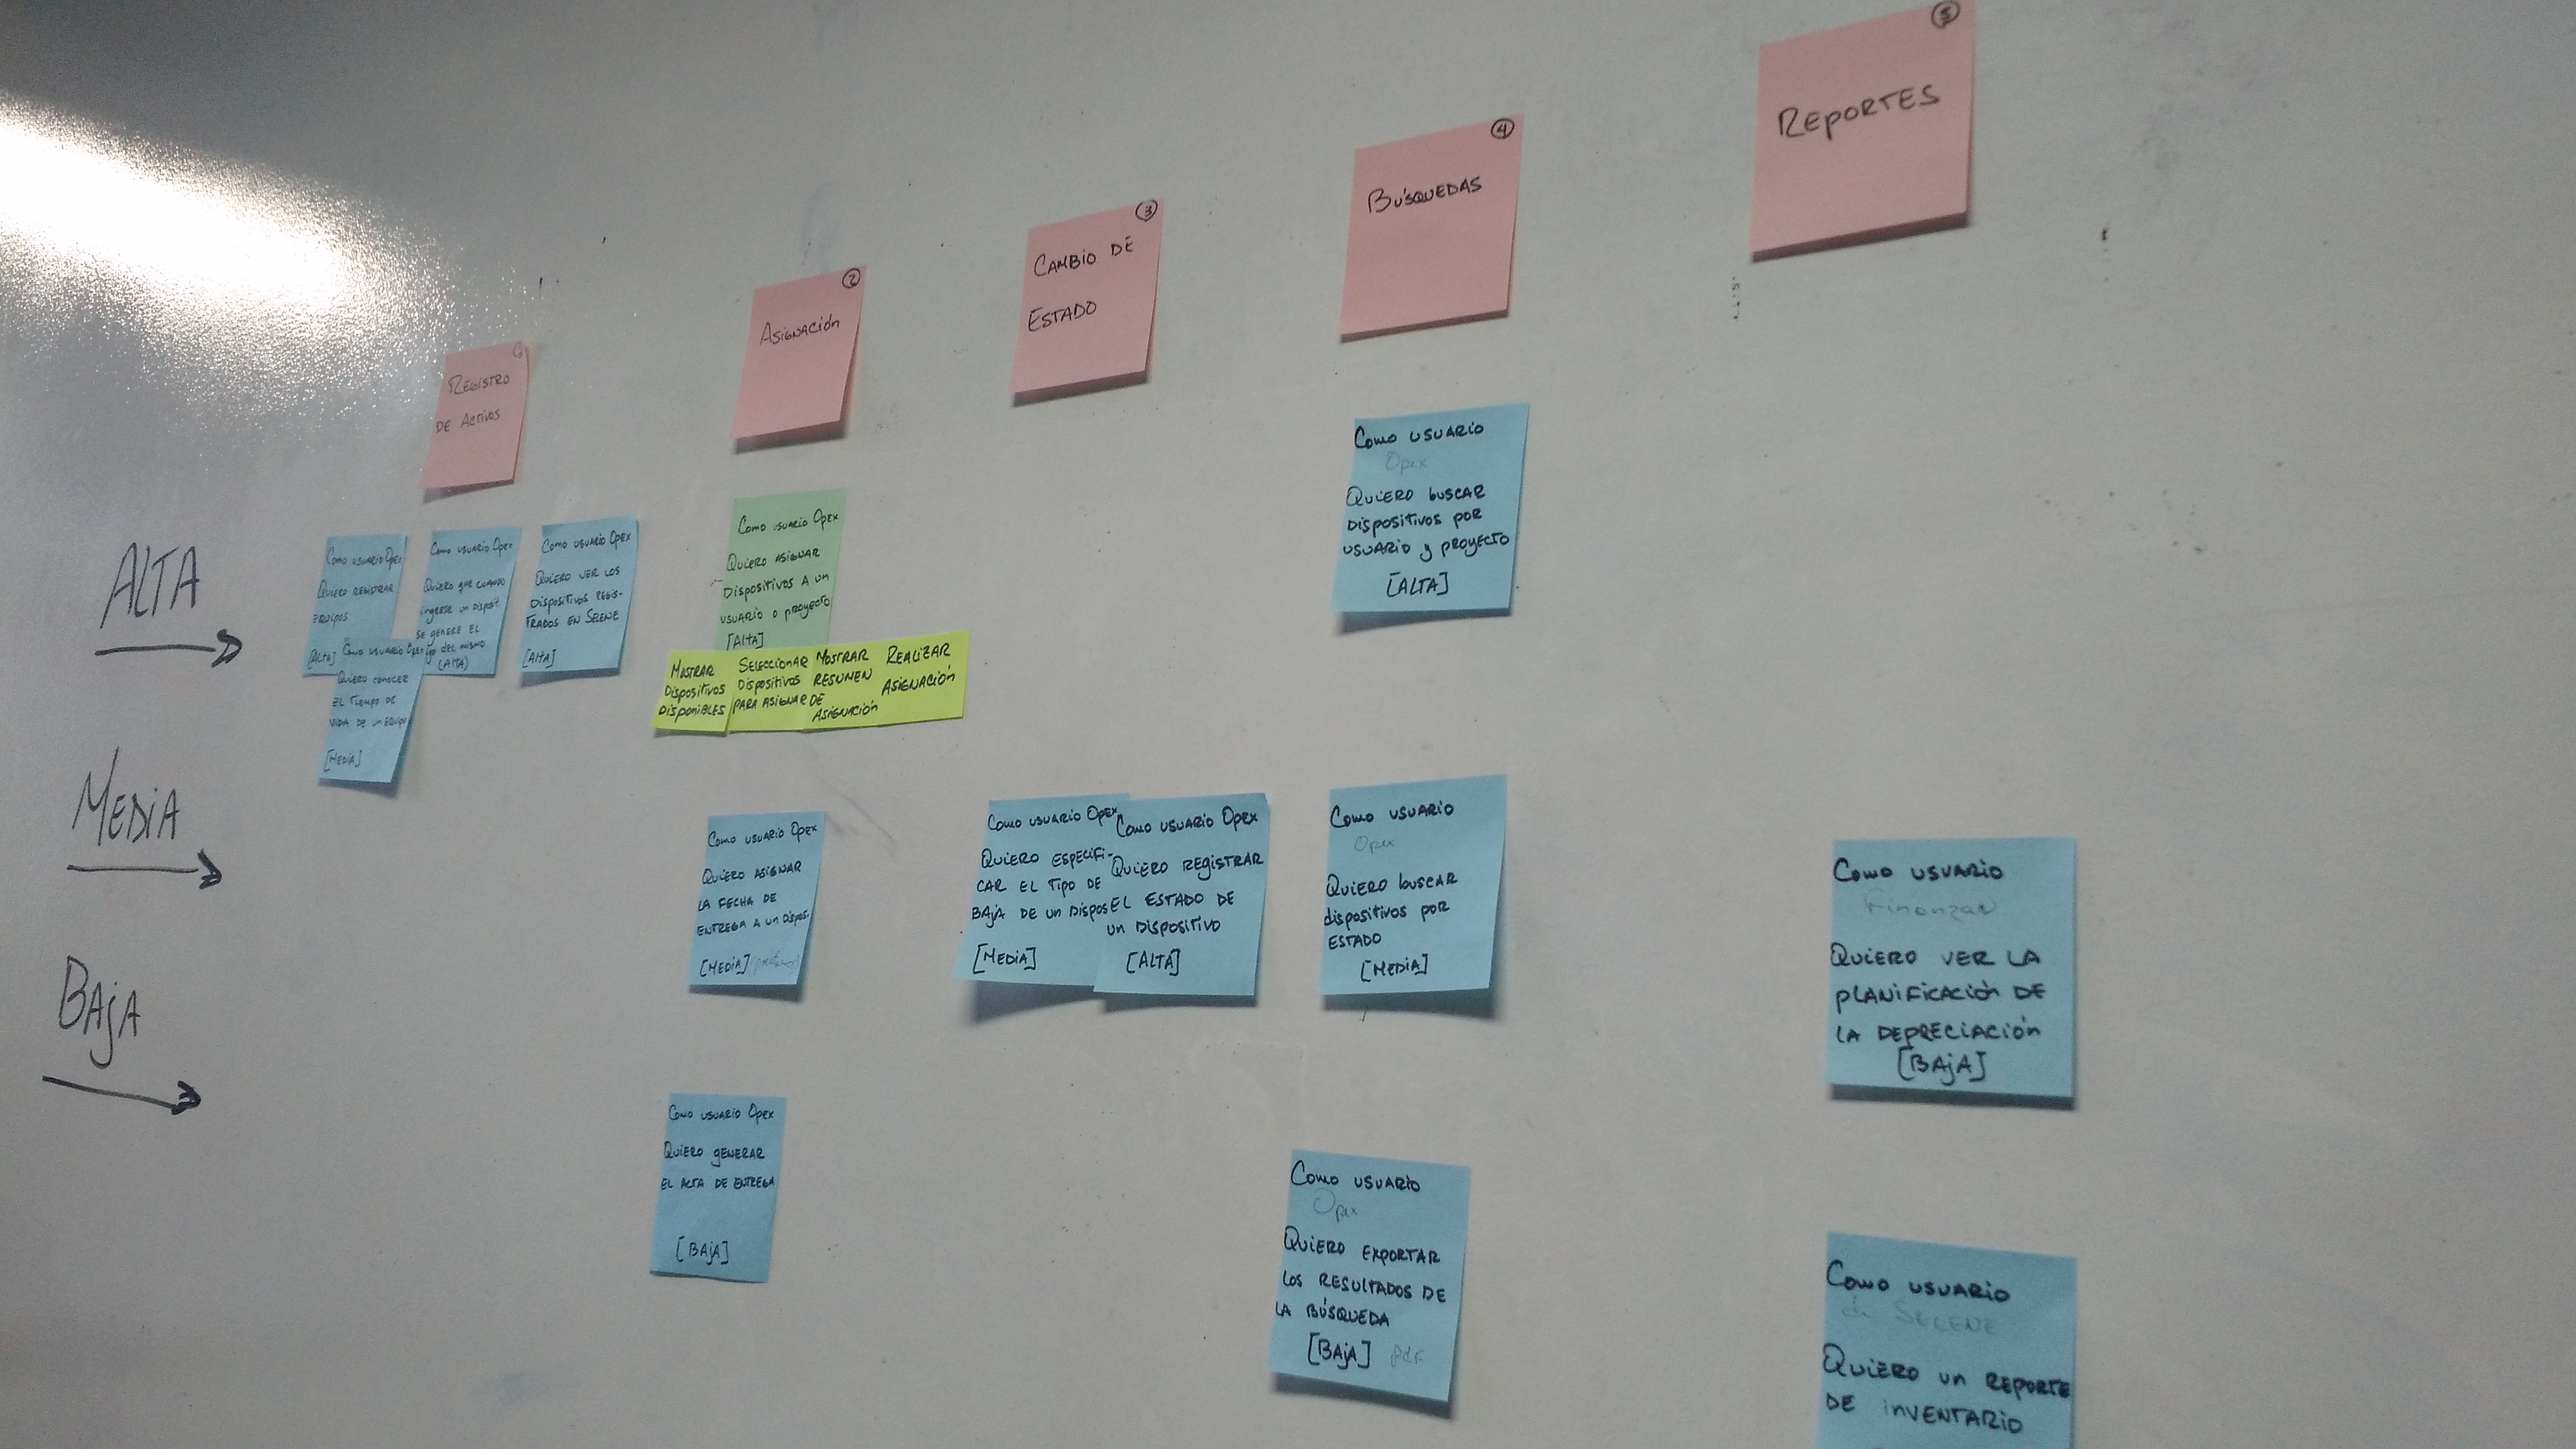 ①
REGISTRO
DE ACTIVOS
②
ASIGNACIÓN
③
CAMBIO DE
ESTADO
④
BÚSQUEDAS
⑤
REPORTES
ALTA
COMO USUARIO OPEX
QUIERO REGISTRAR
EQUIPOS
[ALTA]
COMO USUARIO OPEX
QUIERO QUE CUANDO
INGRESE UN DISPOSIT.
SE GENERE EL
DEL MISMO
(ALTA)
COMO USUARIO OPEX
QUIERO VER LOS
DISPOSITIVOS REGIS-
TRADOS EN SELENE
[ALTA]
COMO USUARIO OPEX
QUIERO CONOCER
EL TIEMPO DE
VIDA DE UN EQUIPO
[MEDIA]
COMO USUARIO OPEX
QUIERO ASIGNAR
DISPOSITIVOS A UN
USUARIO O PROYECTO
[ALTA]
MOSTRAR
DISPOSITIVOS
DISPONIBLES
SELECCIONAR
DISPOSITIVOS
PARA ASIGNAR
MOSTRAR
RESUMEN
DE
ASIGNACIÓN
REALIZAR
ASIGNACIÓN
COMO USUARIO
Opex
QUIERO BUSCAR
DISPOSITIVOS POR
USUARIO Y PROYECTO
[ALTA]
MEDIA
COMO USUARIO OPEX
QUIERO ASIGNAR
LA FECHA DE
ENTREGA A UN DISPOS.
[MEDIA]
COMO USUARIO OPEX
QUIERO ESPECIFI-
CAR EL TIPO DE
BAJA DE UN DISPOS
[MEDIA]
COMO USUARIO OPEX
QUIERO REGISTRAR
EL ESTADO DE
UN DISPOSITIVO
[ALTA]
COMO USUARIO
Opex
QUIERO BUSCAR
DISPOSITIVOS POR
ESTADO
[MEDIA]
COMO USUARIO
Finanzas
QUIERO VER LA
PLANIFICACIÓN DE
LA DEPRECIACIÓN
[BAJA]
BAJA
COMO USUARIO OPEX
QUIERO GENERAR
EL ACTA DE ENTREGA
[BAJA]
COMO USUARIO
Opex
QUIERO EXPORTAR
LOS RESULTADOS DE
LA BÚSQUEDA
[BAJA] pdf
COMO USUARIO
de SELENE
QUIERO UN REPORTE
DE INVENTARIO